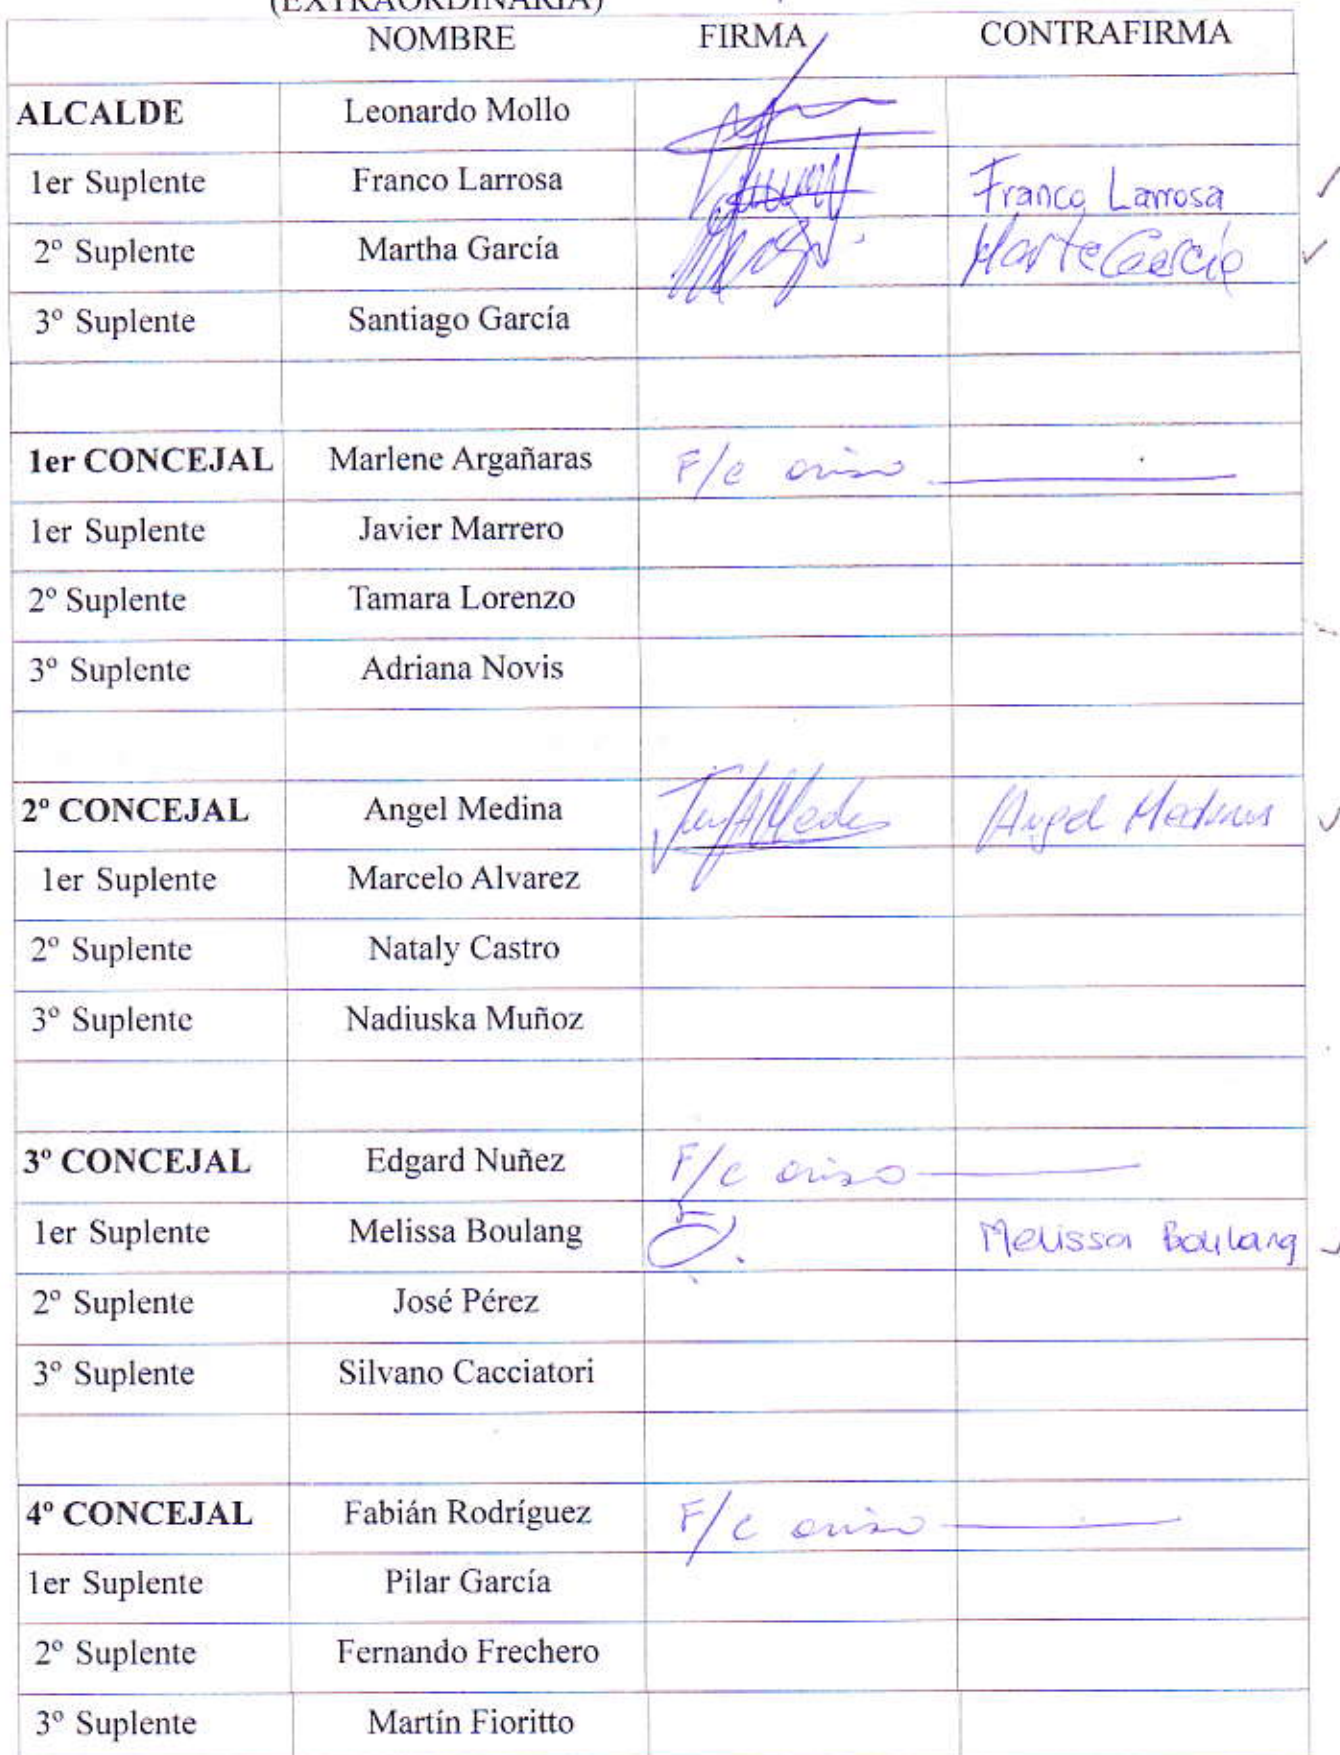 (EXTRAORDINARIA)
NOMBRE FIRMA CONTRAFIRMA
ALCALDE Leonardo Mollo
1er Suplente Franco Larrosa Franco Larrosa
2º Suplente Martha García Marta García
3º Suplente Santiago García
1er CONCEJAL Marlene Argañaras F/c aviso
1er Suplente Javier Marrero
2º Suplente Tamara Lorenzo
3º Suplente Adriana Novis
2º CONCEJAL Angel Medina Angel Medina
1er Suplente Marcelo Alvarez
2º Suplente Nataly Castro
3º Suplente Nadiuska Muñoz
3º CONCEJAL Edgard Nuñez F/c aviso
1er Suplente Melissa Boulang Melissa Boulang
2º Suplente José Pérez
3º Suplente Silvano Cacciatori
4º CONCEJAL Fabián Rodríguez F/c aviso
1er Suplente Pilar García
2º Suplente Fernando Frechero
3º Suplente Martín Fioritto